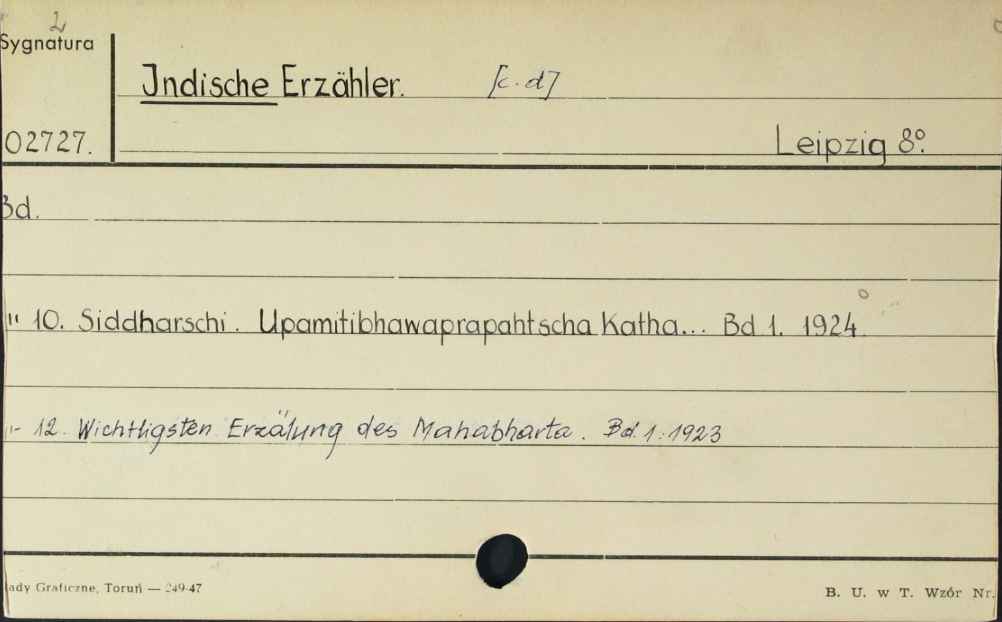 2
Sygnatura
Indische Erzähler. [c.d]
02727.
Leipzig 8°.
Bd.
" 10. Siddharschi. Upamitibhawaprapahtscha Katha... Bd 1. 1924
"- 12. Wichtligsten Erzälung des Mahabharta. Bd. 1. 1923
ady Graficzne, Toruń — 249-47
B. U. w T. Wzór Nr.